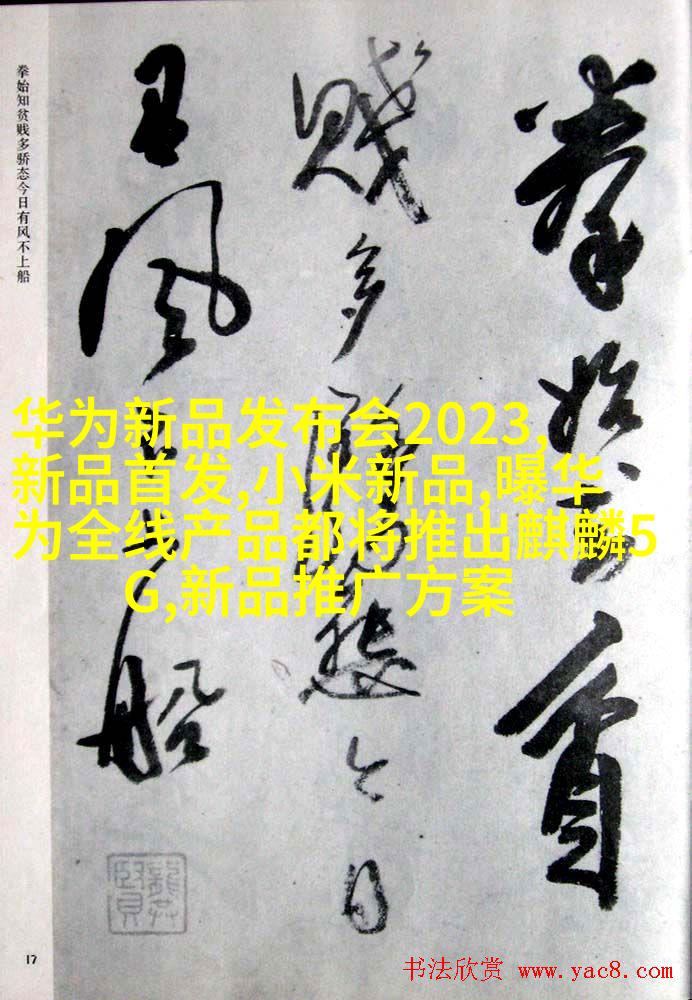 拳始知贫
贱多骄态今日
有风不上船
拳始知贫贱多骄态今日有风不上船
华为新品发布会2023,
新品首发,小米新品,曝华
为全线产品都将推出麒麟5
G,新品推广方案
17
书法欣赏 www.yac8.com